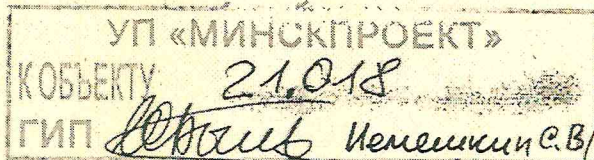 УП «МИНСКПРОЕКТ»
К ОБЪЕКТУ 21.018
ГИП Немешкин С.В/